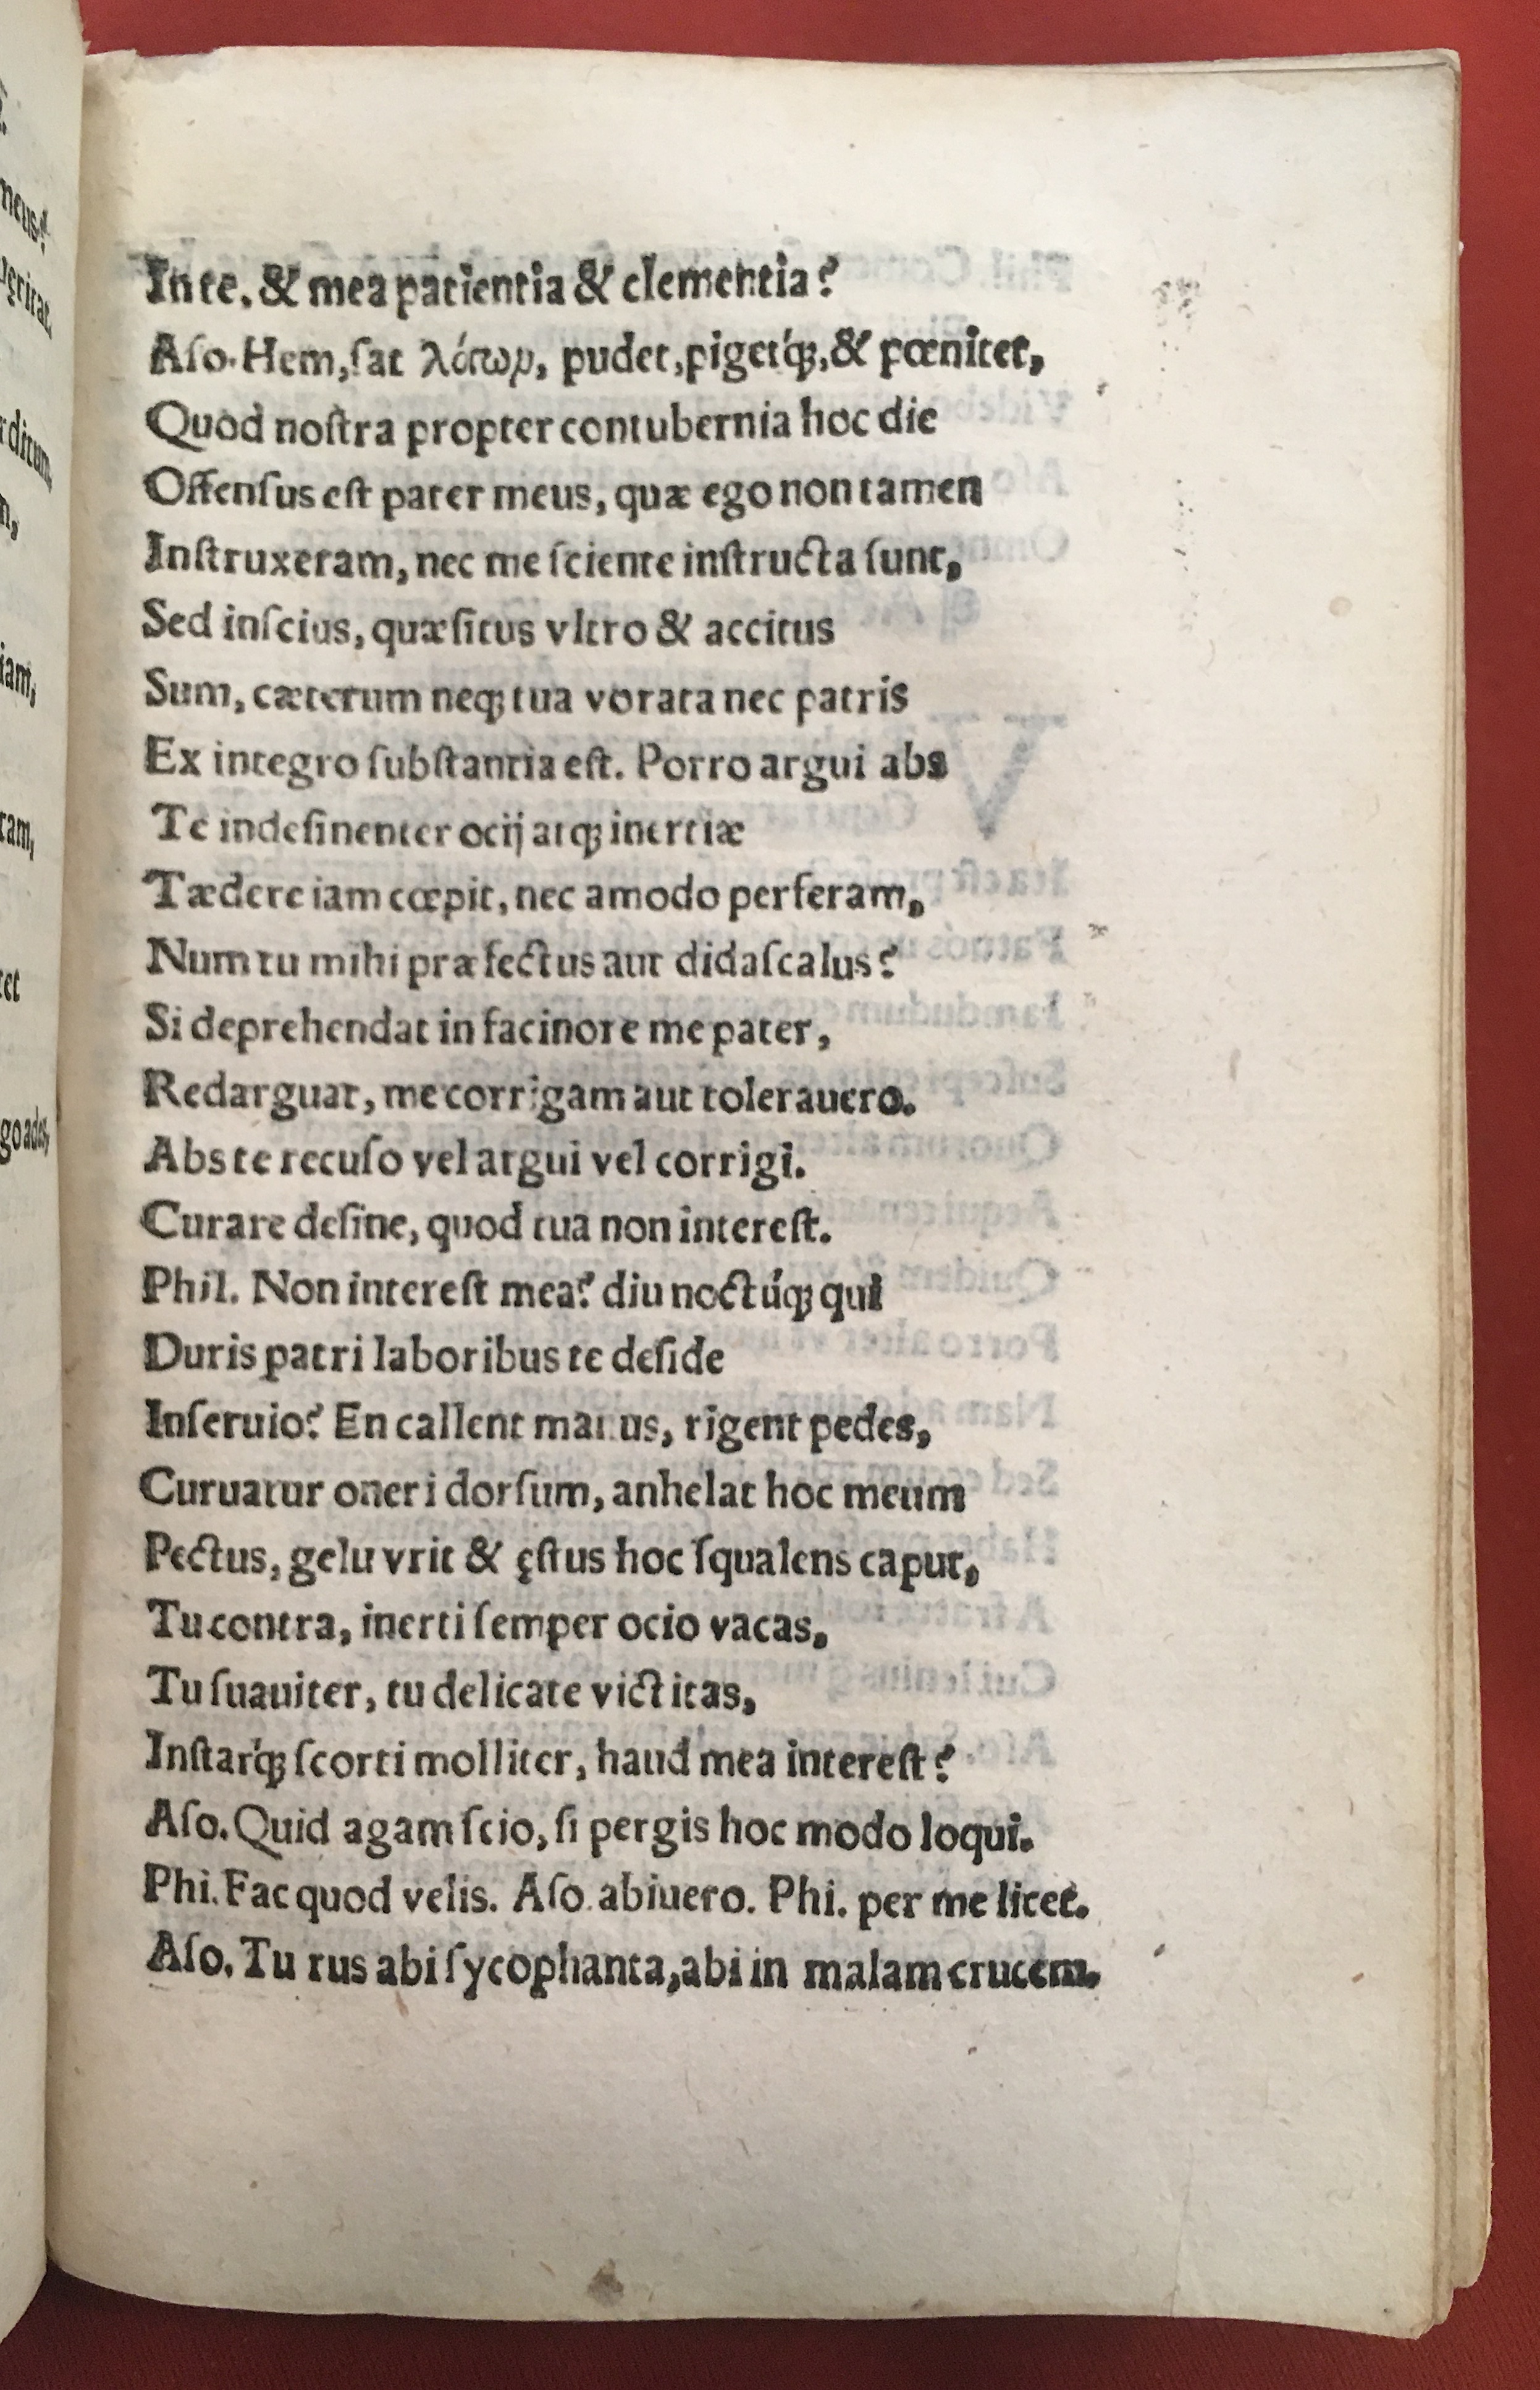 In te, & mea patientia & clementia?
Aſo. Hem, ſat λόγωρ, pudet, piget'q;, & pœnitet,
Quod noſtra propter contubernia hoc die
Offenſus eſt pater meus, quæ ego non tamen
Inſtruxeram, nec me ſciente inſtructa ſunt,
Sed inſcius, quæſitus vltro & accitus
Sum, cæterum neq; tua vorata nec patris
Ex integro ſubſtantia eſt. Porro argui abs
Te indeſinenter ocij atq; inertiæ
Tædere iam cœpit, nec amodo perferam,
Num tu mihi præfectus aut didaſcalus?
Si deprehendat in facinore me pater,
Redarguat, me corrigam aut tolerauero.
Abs te recuſo vel argui vel corrigi.
Curare deſine, quod tua non intereſt.
Phil. Non intereſt mea? diu noctúq; qui
Duris patri laboribus te deſide
Inſeruio? En callent manus, rigent pedes,
Curuatur oneri dorſum, anhelat hoc meum
Pectus, gelu vrit & ęſtus hoc ſqualens caput,
Tu contra, inerti ſemper ocio vacas,
Tu ſuauiter, tu delicate victitas,
Inſtar'q; ſcorti molliter, haud mea intereſt?
Aſo. Quid agam ſcio, ſi pergis hoc modo loqui.
Phi. Fac quod velis. Aſo. abiuero. Phi. per me licet.
Aſo. Tu rus abi ſycophanta, abi in malam crucem.